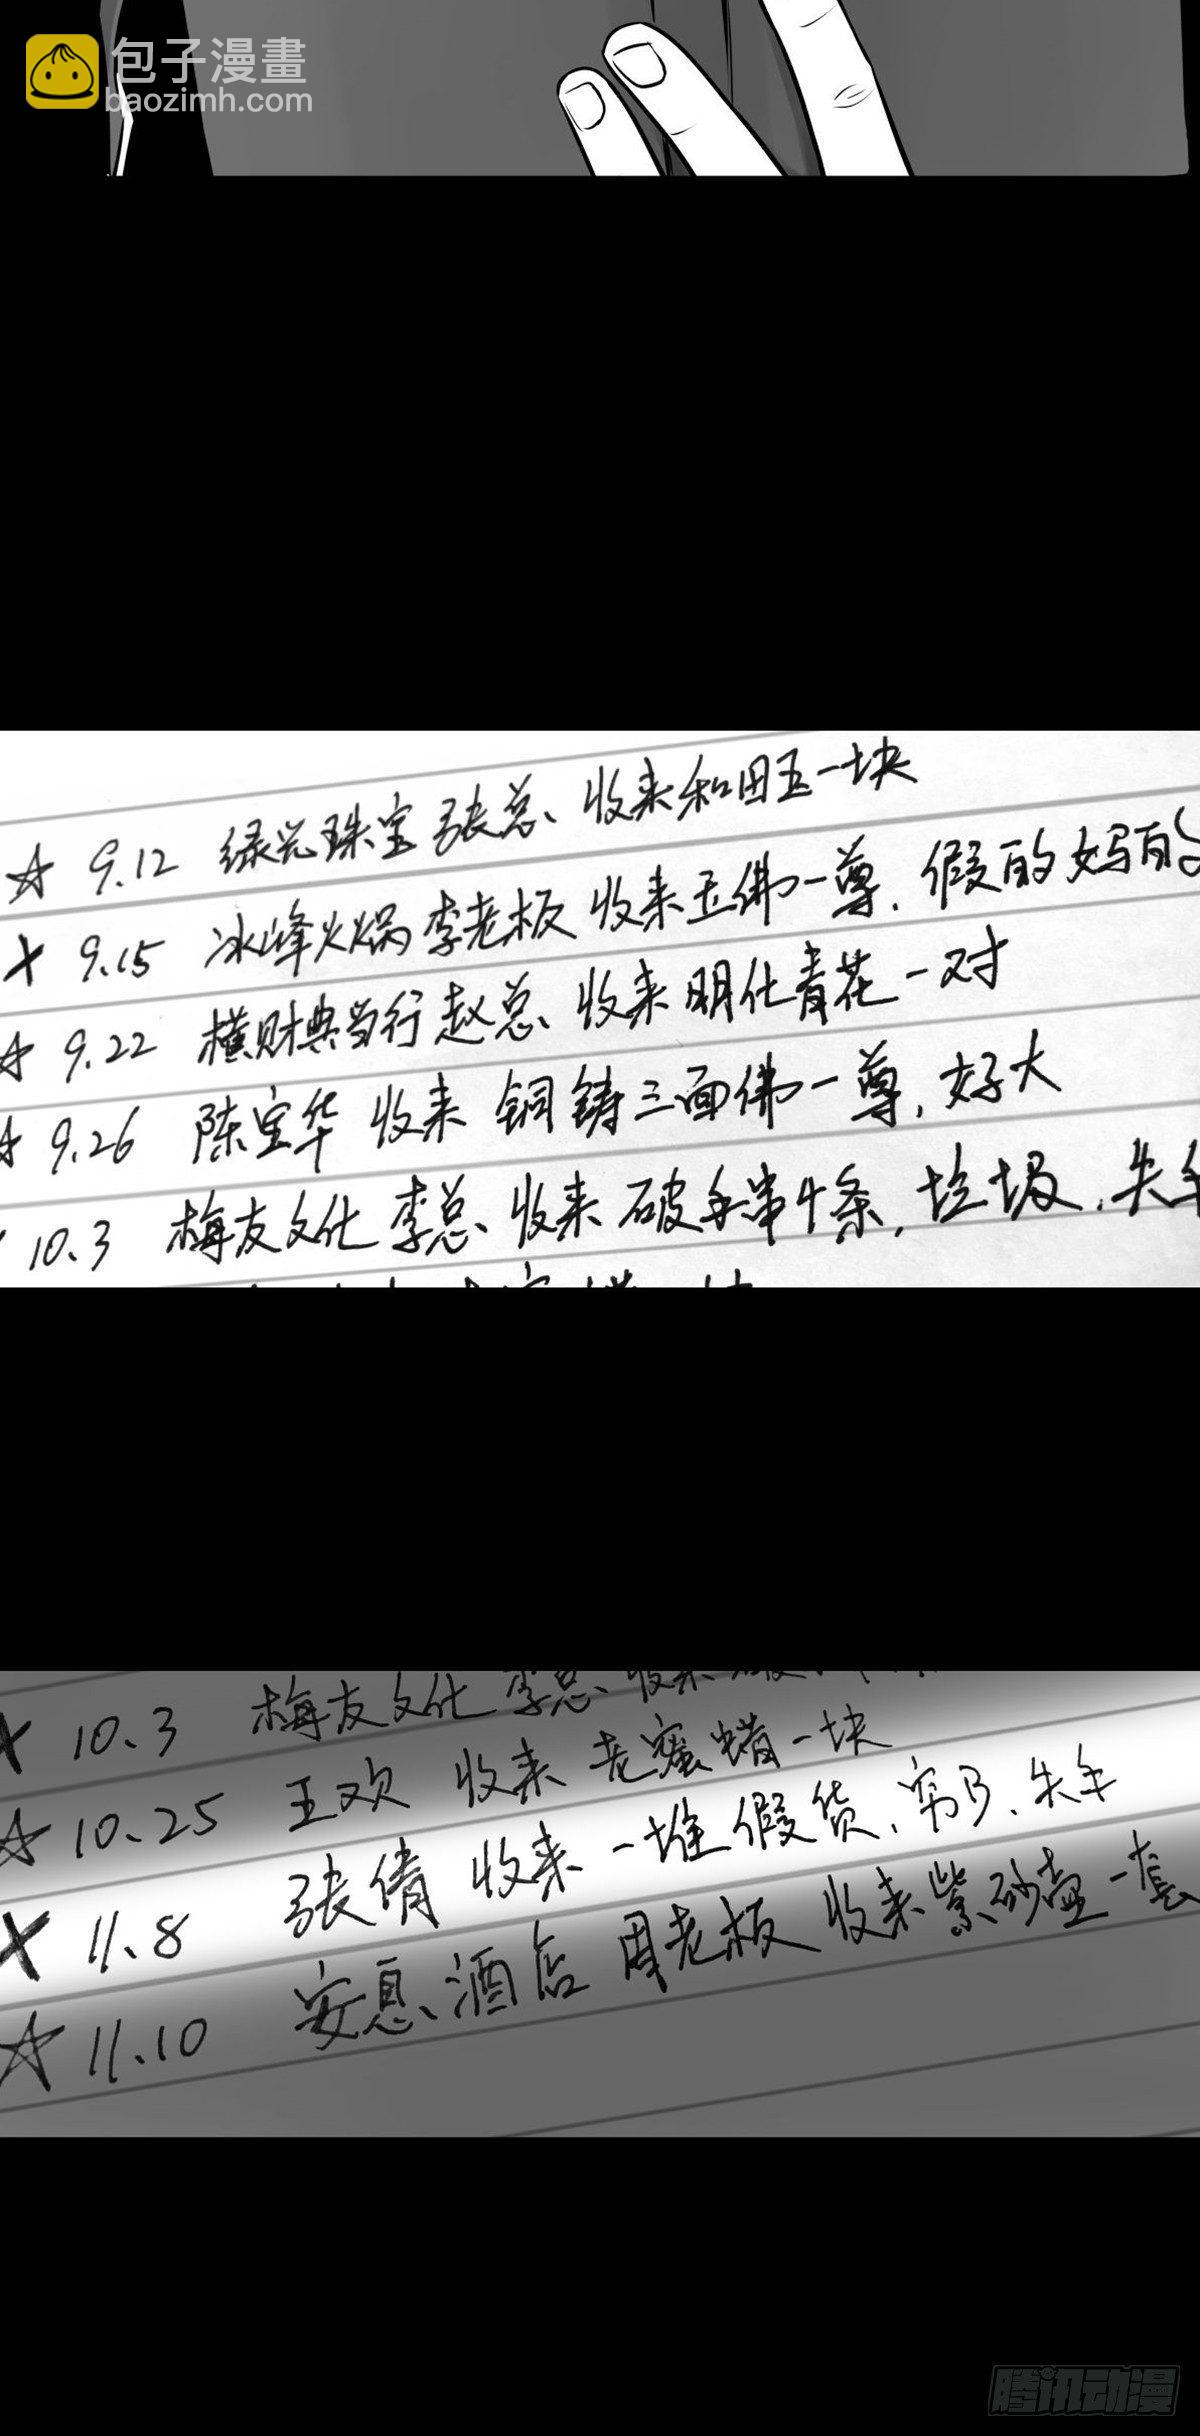 包子漫畫
baozimh.com
☆ 9.12 绿光珠宝 张总、收来和田玉一块
X 9.15 冰峰火锅 李老板 收来玉佛一尊,假的妈的
☆ 9.22 横财典当行 赵总、收来 明代青花一对
☆ 9.26 陈宝华 收来 铜铸三面佛一尊,好大
10.3 梅友文化 李总、收来 破手串4条,垃圾,失手
X 10.3 梅友文化 李总、收来
☆ 10.25 王欢 收来 老蜜蜡一块
X 11.8 张倩 收来 一堆假货,穷B、失手
☆ 11.10 安息、酒店 周老板 收来紫砂壶一套
腾讯动漫